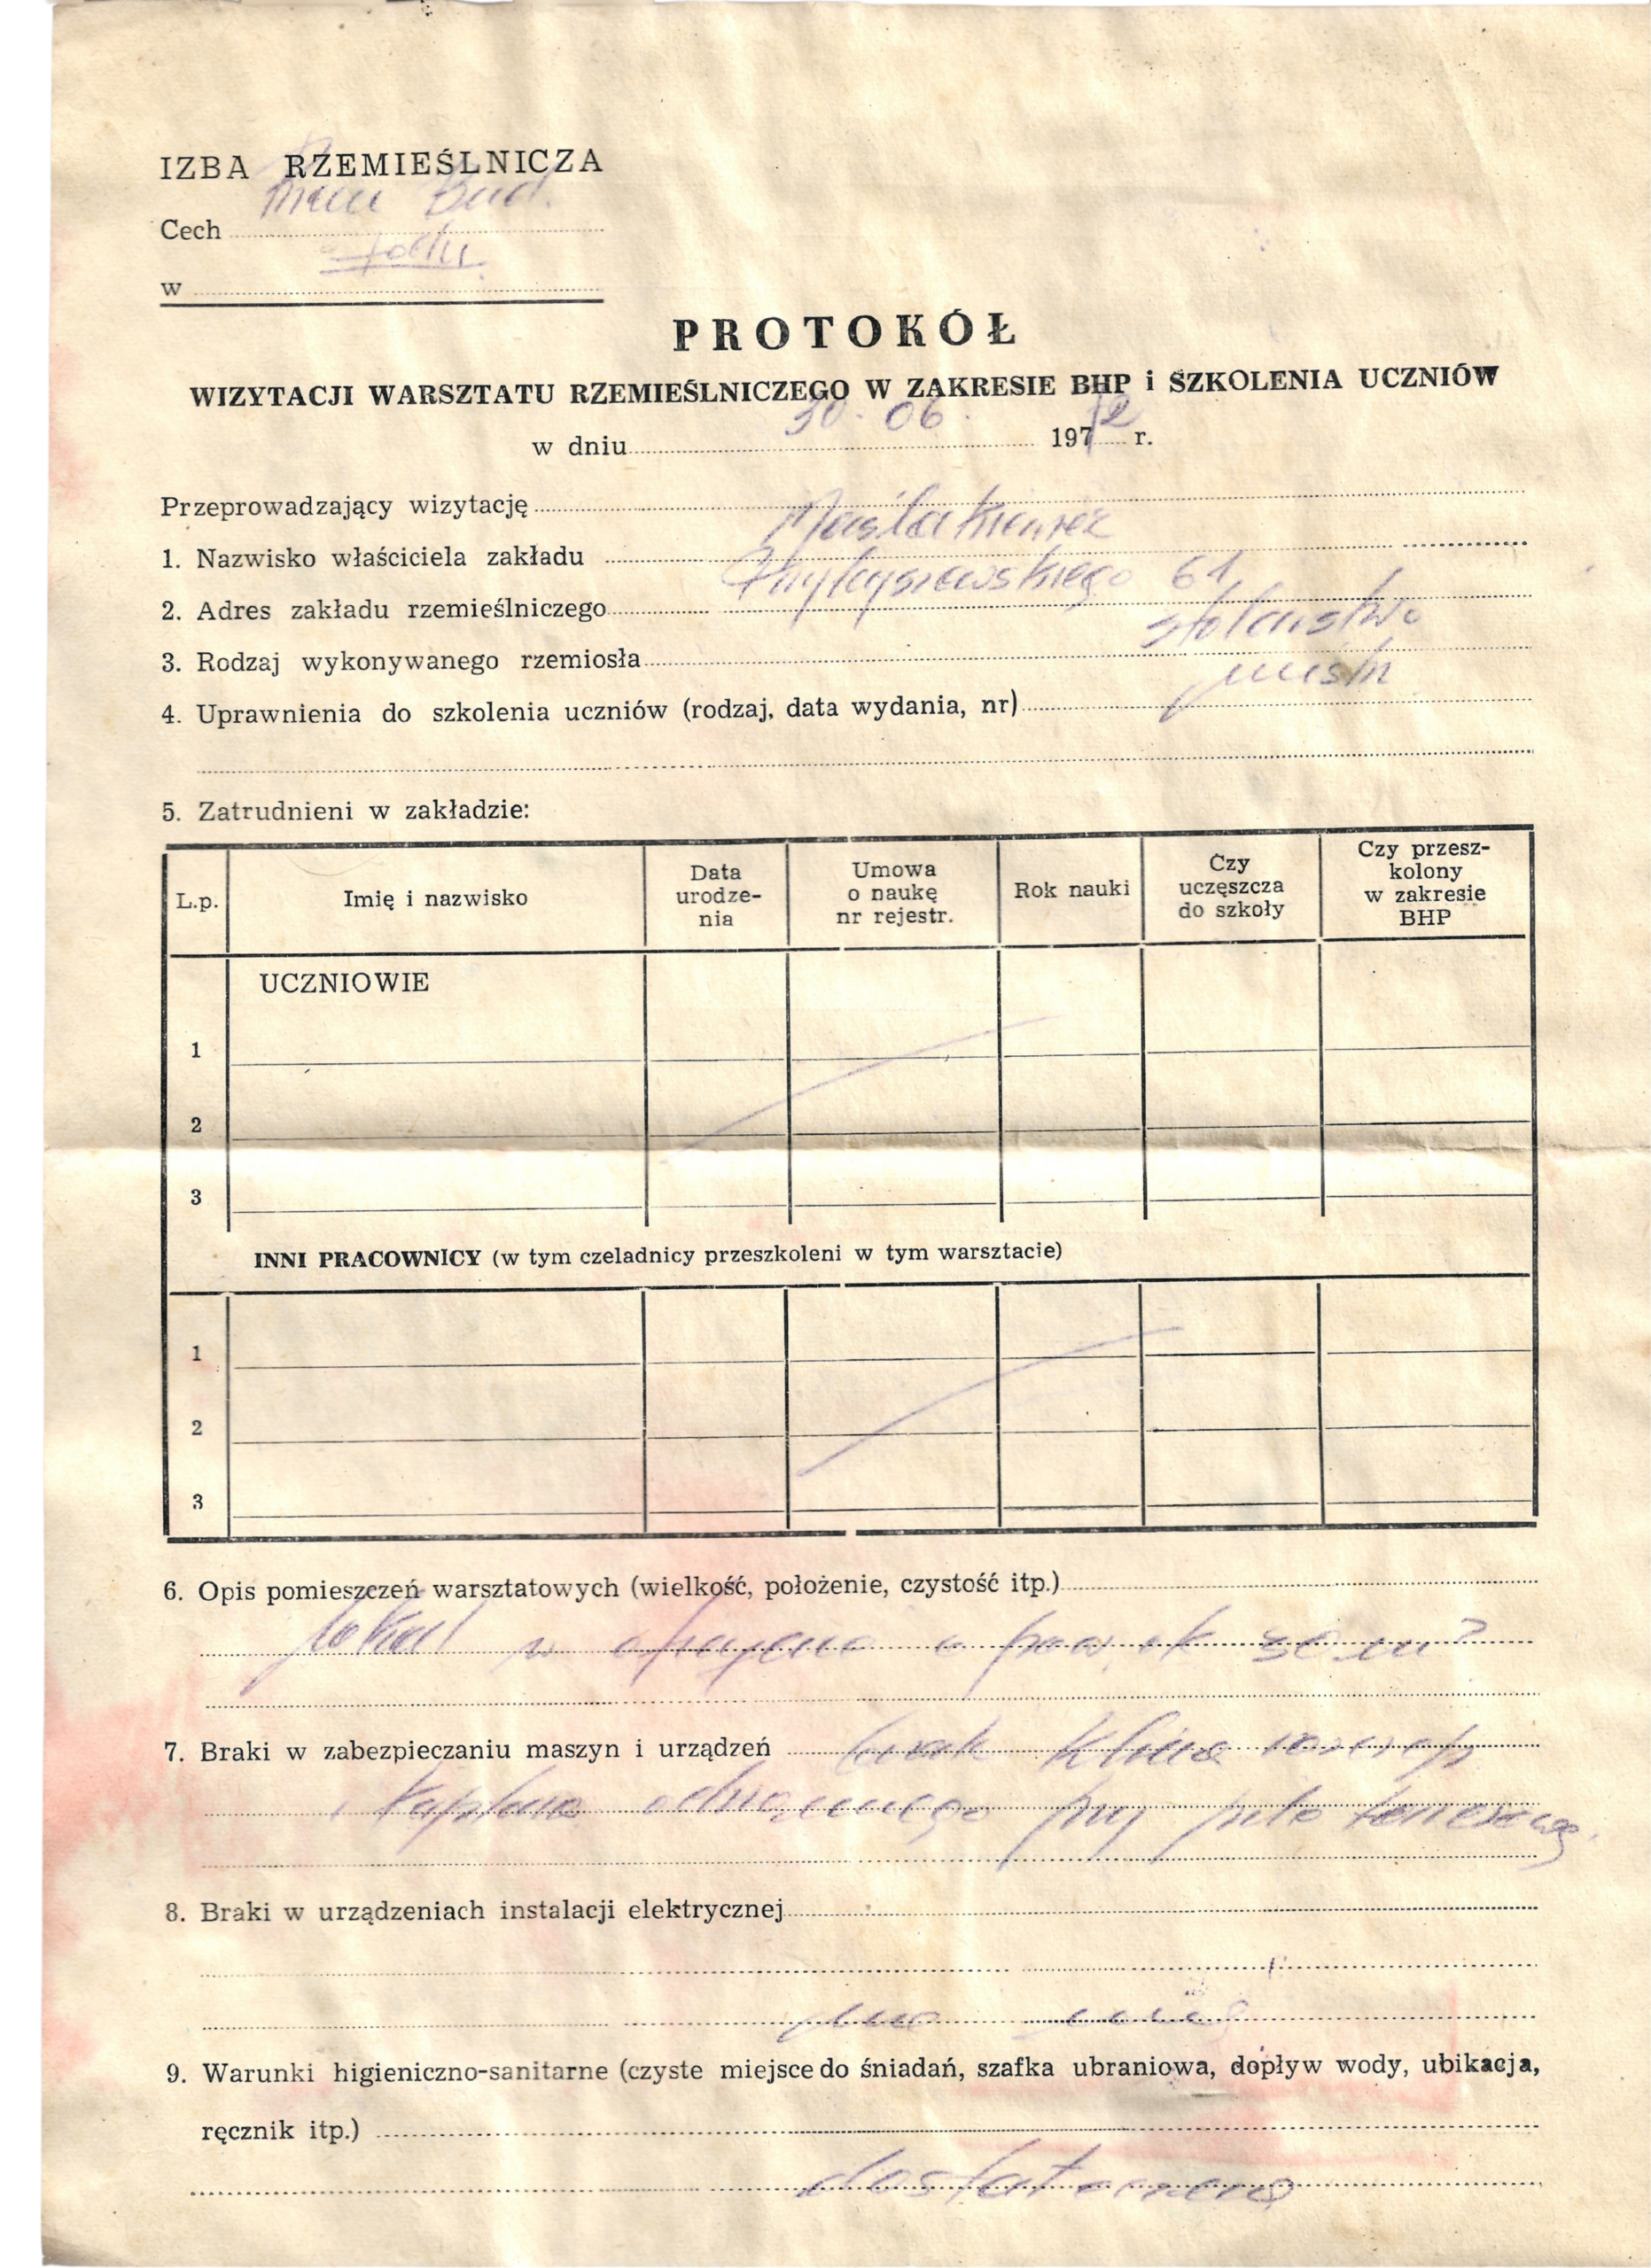 IZBA RZEMIEŚLNICZA
Cech Bud.
w Łodzi
PROTOKÓŁ
WIZYTACJI WARSZTATU RZEMIEŚLNICZEGO W ZAKRESIE BHP i SZKOLENIA UCZNIÓW
w dniu 30. 06. 1972 r.
Przeprowadzający wizytację
1. Nazwisko właściciela zakładu
2. Adres zakładu rzemieślniczego Przybyszewskiego 61
3. Rodzaj wykonywanego rzemiosła stolarstwo
4. Uprawnienia do szkolenia uczniów (rodzaj, data wydania, nr) mistrz
5. Zatrudnieni w zakładzie:
L.p.
Imię i nazwisko
Data urodze-
nia
Umowa
o naukę
nr rejestr.
Rok nauki
Czy
uczęszcza
do szkoły
Czy przesz-
kolony
w zakresie
BHP
UCZNIOWIE
1
2
3
INNI PRACOWNICY (w tym czeladnicy przeszkoleni w tym warsztacie)
1
2
3
6. Opis pomieszczeń warsztatowych (wielkość, położenie, czystość itp.)
lokal w oficynie o pow. ok 30 m²
7. Braki w zabezpieczaniu maszyn i urządzeń brak klina rozszczep
i kaptura ochronnego przy pile tarczowej
8. Braki w urządzeniach instalacji elektrycznej
9. Warunki higieniczno-sanitarne (czyste miejsce do śniadań, szafka ubraniowa, dopływ wody, ubikacja,
ręcznik itp.)
dostateczne